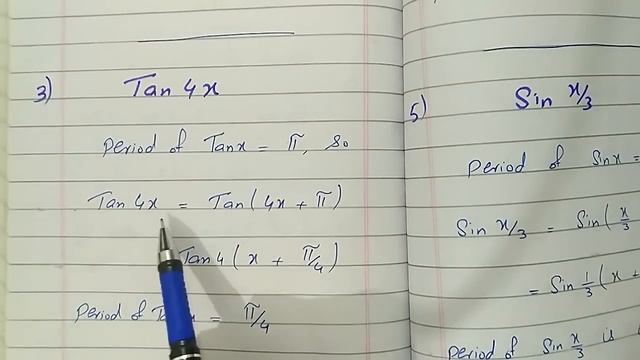 3) Tan 4x
Period of Tanx = π, so
Tan 4x = Tan(4x + π)
Tan 4(x + π/4)
Period of = π/4
5) Sin x/3
Period of Sinx =
Sin x/3 = Sin(x/3
= Sin 1/3 (x +
Period of Sin x/3 is